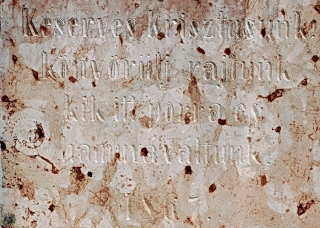 Keserves Krisztusunk
könyörülj rajtunk
kik itt porrá és
hamuvá váltunk.
1867.